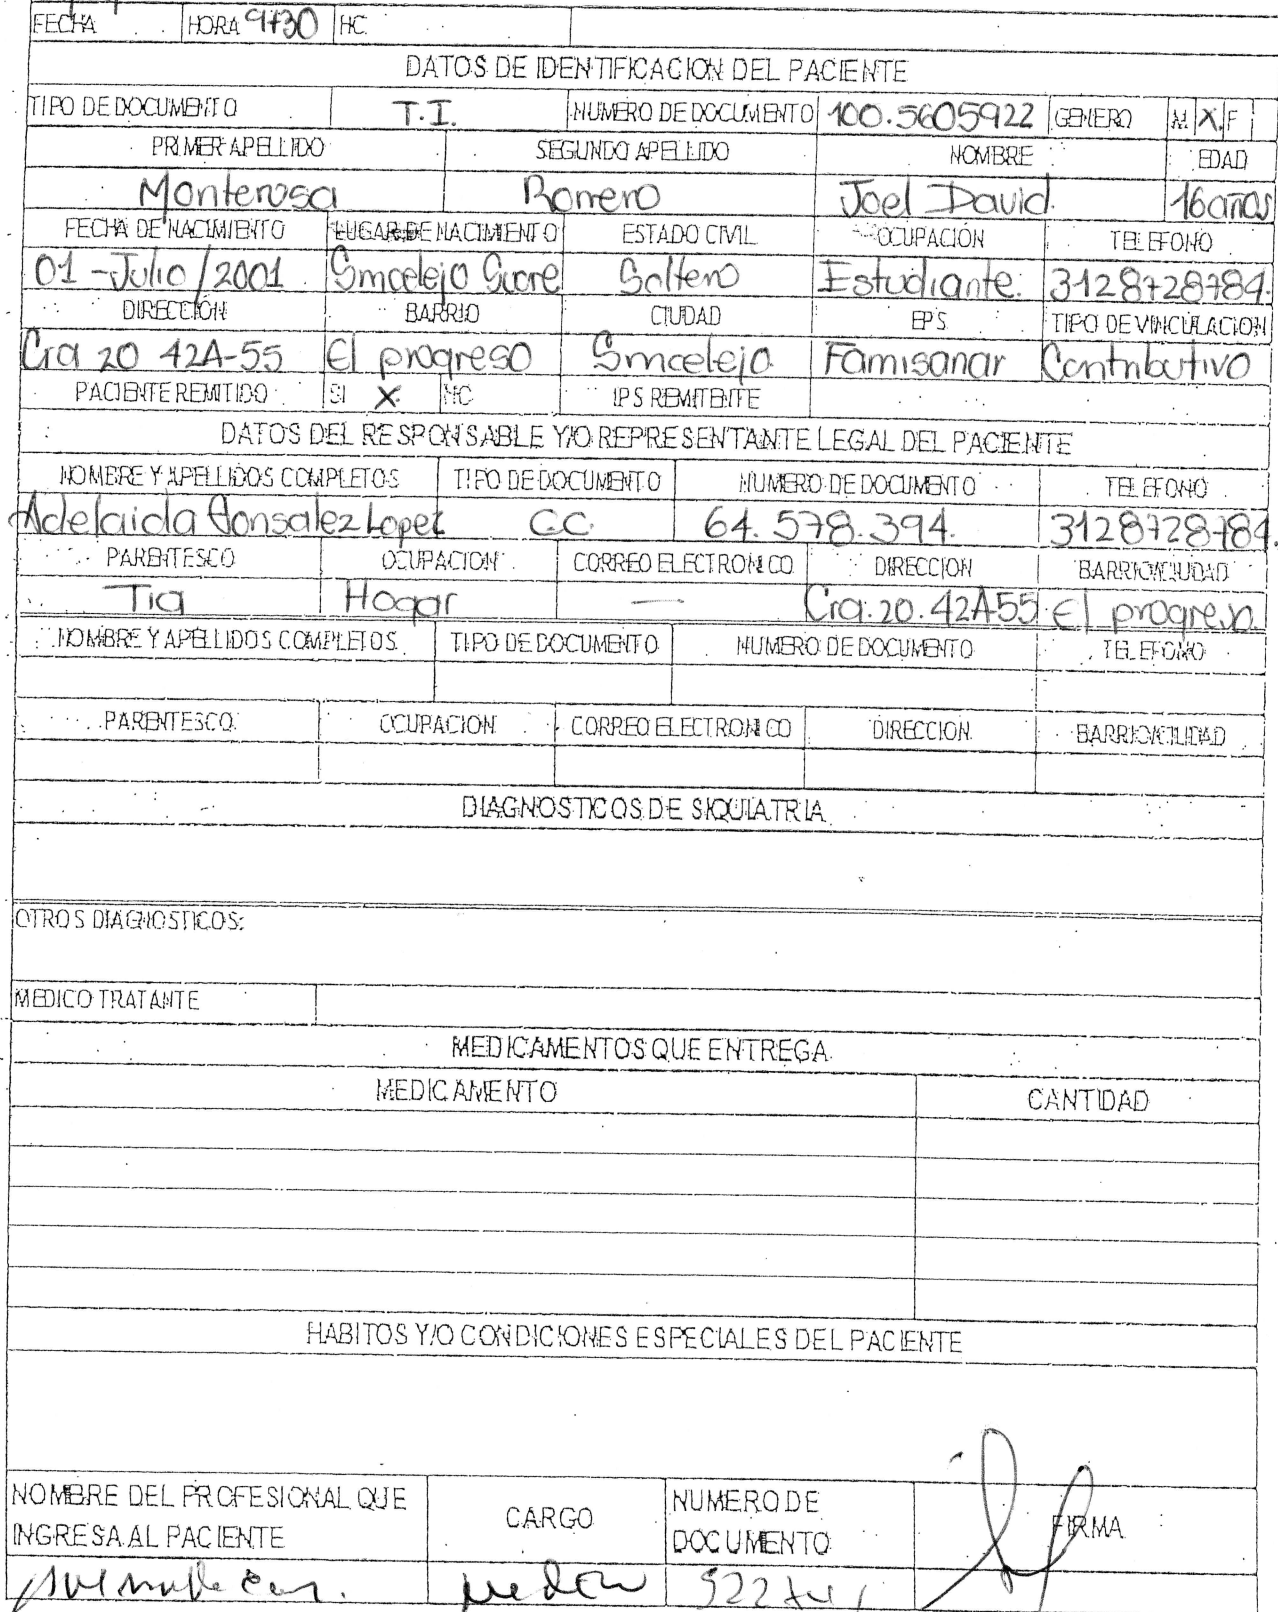 FECHA HORA 9+30 HC
DATOS DE IDENTIFICACION DEL PACIENTE
TIPO DE DOCUMENTO T.I. NUMERO DE DOCUMENTO 100.5605922 GENERO M X F
PRIMER APELLIDO SEGUNDO APELLIDO NOMBRE EDAD
Monterosa Romero Joel David. 16 años
FECHA DE NACIMIENTO LUGAR DE NACIMIENTO ESTADO CIVIL OCUPACIÓN TELEFONO
01-Julio/2001 Sincelejo Sucre Soltero Estudiante. 3128728784.
DIRECCIÓN BARRIO CIUDAD EPS TIPO DE VINCULACION
Cra 20 42A-55 El progreso Sincelejo Famisanar Contributivo
PACIENTE REMITIDO SI X NO IPS REMITENTE
DATOS DEL RESPONSABLE Y/O REPRESENTANTE LEGAL DEL PACIENTE
NOMBRE Y APELLIDOS COMPLETOS TIPO DE DOCUMENTO NUMERO DE DOCUMENTO TELEFONO
Adelaida Gonsalez Lopez CC. 64.578.394. 3128728784.
PARENTESCO OCUPACION CORREO ELECTRONICO DIRECCION BARRIO/CIUDAD
Tia Hogar — Cra. 20. 42A55 El progreso.
NOMBRE Y APELLIDOS COMPLETOS TIPO DE DOCUMENTO NUMERO DE DOCUMENTO TELEFONO
PARENTESCO OCUPACION CORREO ELECTRONICO DIRECCION BARRIO/CIUDAD
DIAGNOSTICOS DE SIQUIATRIA
OTROS DIAGNOSTICOS:
MEDICO TRATANTE
MEDICAMENTOS QUE ENTREGA
MEDICAMENTO CANTIDAD
HABITOS Y/O CONDICIONES ESPECIALES DEL PACIENTE
NOMBRE DEL PROFESIONAL QUE INGRESA AL PACIENTE CARGO NUMERO DE DOCUMENTO FIRMA